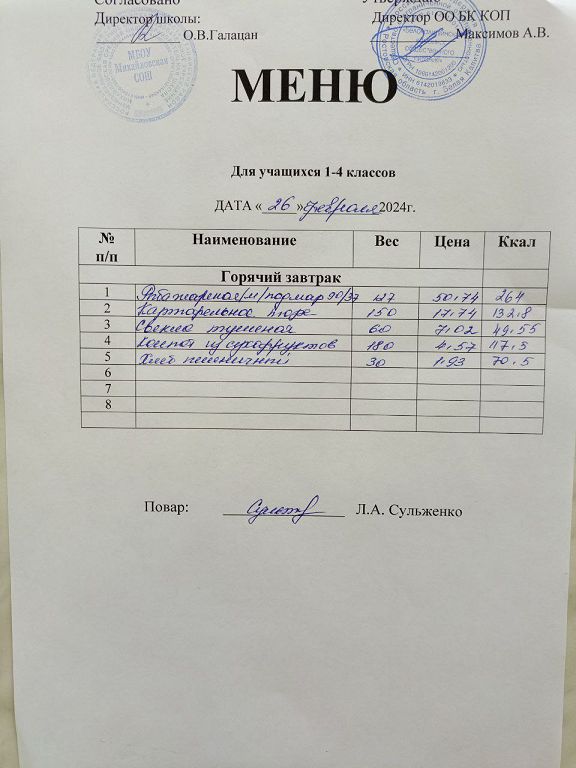 Согласовано
Директор школы: Директор ОО БК КОП
О.В.Галацан Максимов А.В.
МБОУ
Михайловская
СОШ
МЕНЮ
Для учащихся 1-4 классов
ДАТА « 26 » февраля 2024г.
№ п/п Наименование Вес Цена Ккал
Горячий завтрак
1 90/37 127 50.74 264
2 Картофельное пюре 150 17.74 132.8
3 Свекла тушеная 60 7.02 49.55
4 Компот из сухофруктов 180 4.57 117.5
5 Хлеб пшеничный 30 1.93 70.5
6
7
8
Повар: Л.А. Сульженко